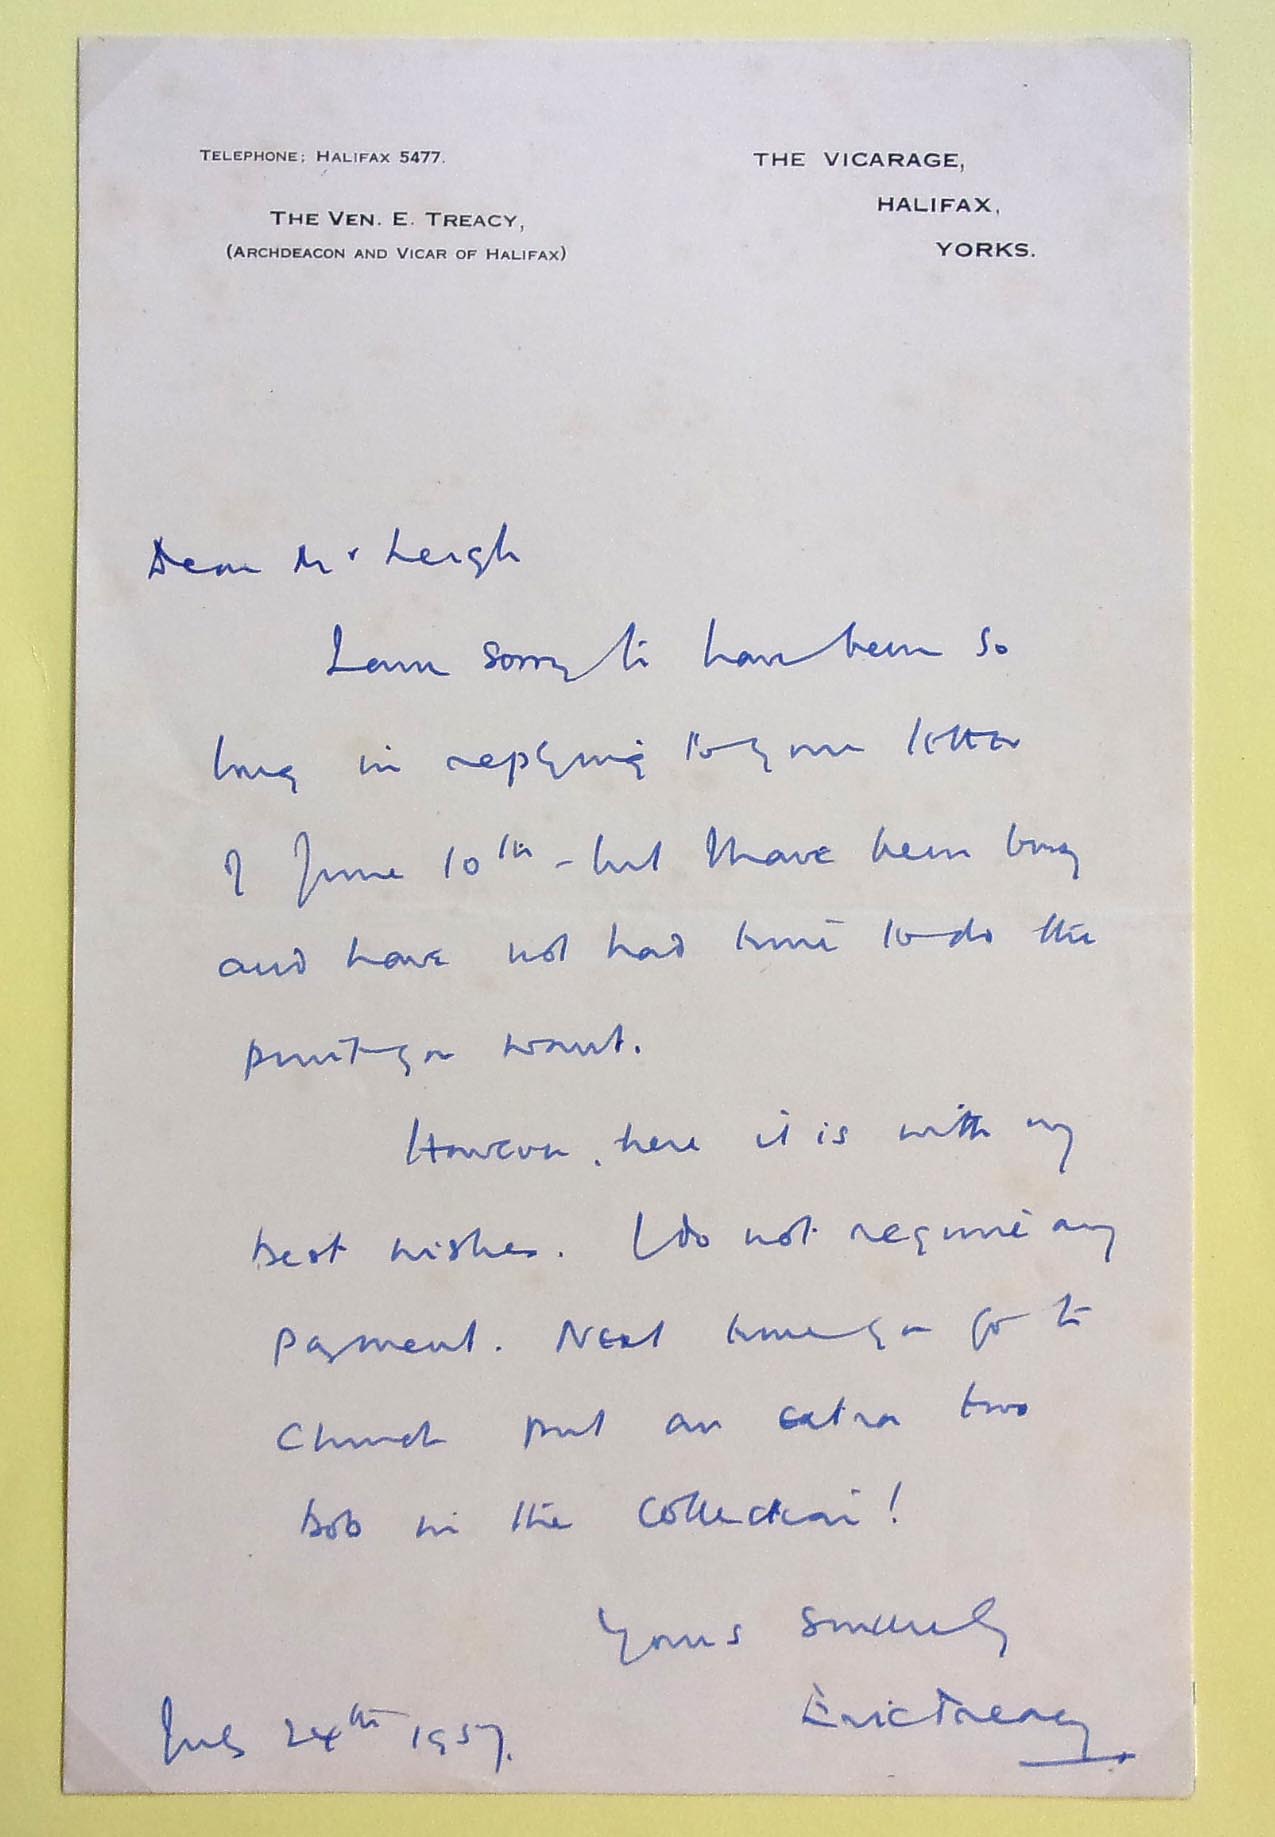 TELEPHONE; HALIFAX 5477.
THE VEN. E. TREACY,
(ARCHDEACON AND VICAR OF HALIFAX)
THE VICARAGE,
HALIFAX,
YORKS.
Dear Mr Leigh
I am sorry to have been so
long in replying to your letter
of June 10th - but I have been busy
and have not had time to do the
print you want.
However, here it is with my
best wishes. I do not require any
payment. Next time you go to
Church put an extra two
bob in the collection!
Yours sincerely
Eric Treacy
July 24th 1957.